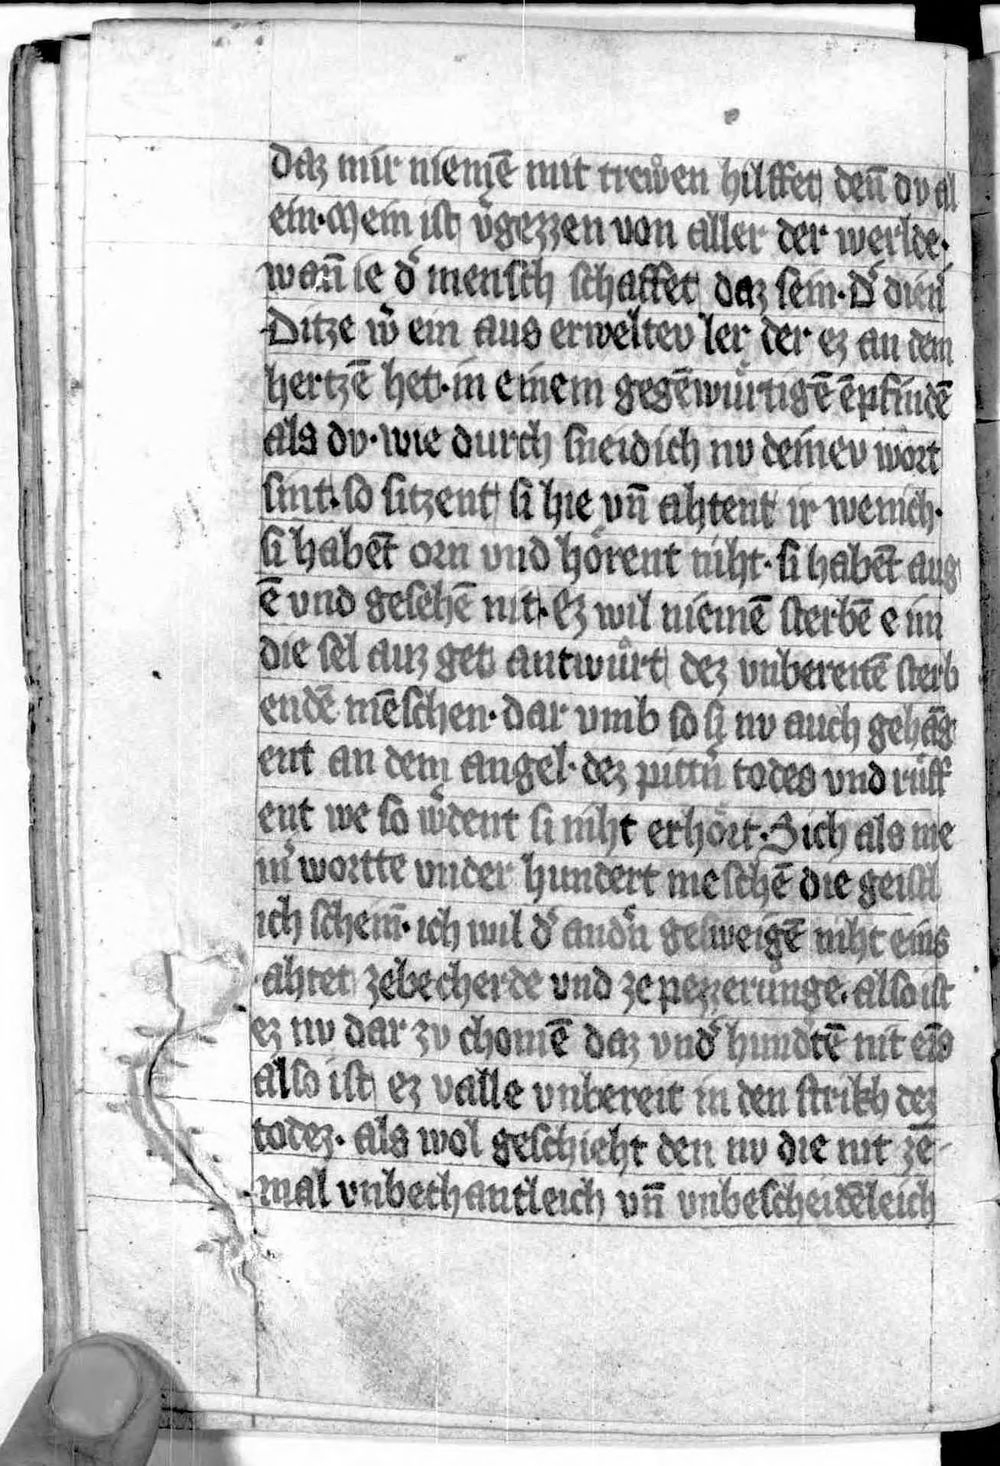 daz mir niemē mit trewͦen hilffet denn̄ dv al
ein · Mein ist v̓gezzen von aller der werlde ·
wann̄ ie d̓ mensch schaffet daz sein · D̓ dien̓
Ditze w̓ ein aus erweltev ler der ez an dem
hertzē het · in einem gegēwuͤrtigē ēpfindē
als dv · wie durch sneidich nv deinev woͤrt
sint · so sitzent si hie vnn̄ ahtent ir wenich ·
si habēt orn vnd hoͤrent niht · si habēt aug
ē vnd gesehē nit · Ez wil niemē sterbē e im
die sel auz get antwuͤrt dez vnbereitē sterb
endē mēschen · dar vmb so si nv auch gehāg
ent an dem angel · dez pittn̓ todes vnd ruͤff
ent we so w̓dent si niht erhoͤrt · Sich als me
in̓ wortte vnder hundert meschē die geistl
ich schein̄ · ich wil d̓ andn̓ gesweigē niht eins
ahtet zebecherde vnd ze pezzerunge · also ist
ez nv dar zv chomē daz vnd̓ hundtē nit eīs
also ist ez valle vnbereit in den strikh dez
todez · als wol geschieht den nv die nit zē
mal vnbethantleich vnn̄ vnbescheidēleich